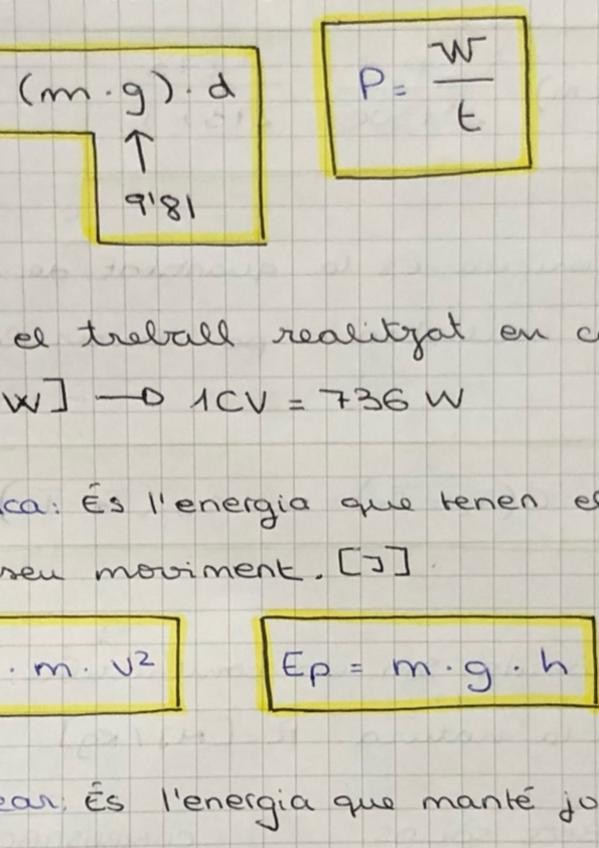 (m · g) · d
P = W / t
↑
9'81
el treball realitzat en c
W] → 1CV = 736 W
ca: És l'energia que tenen e
seu moviment. [J]
· m · v²
Ep = m · g · h
ear: És l'energia que manté jo